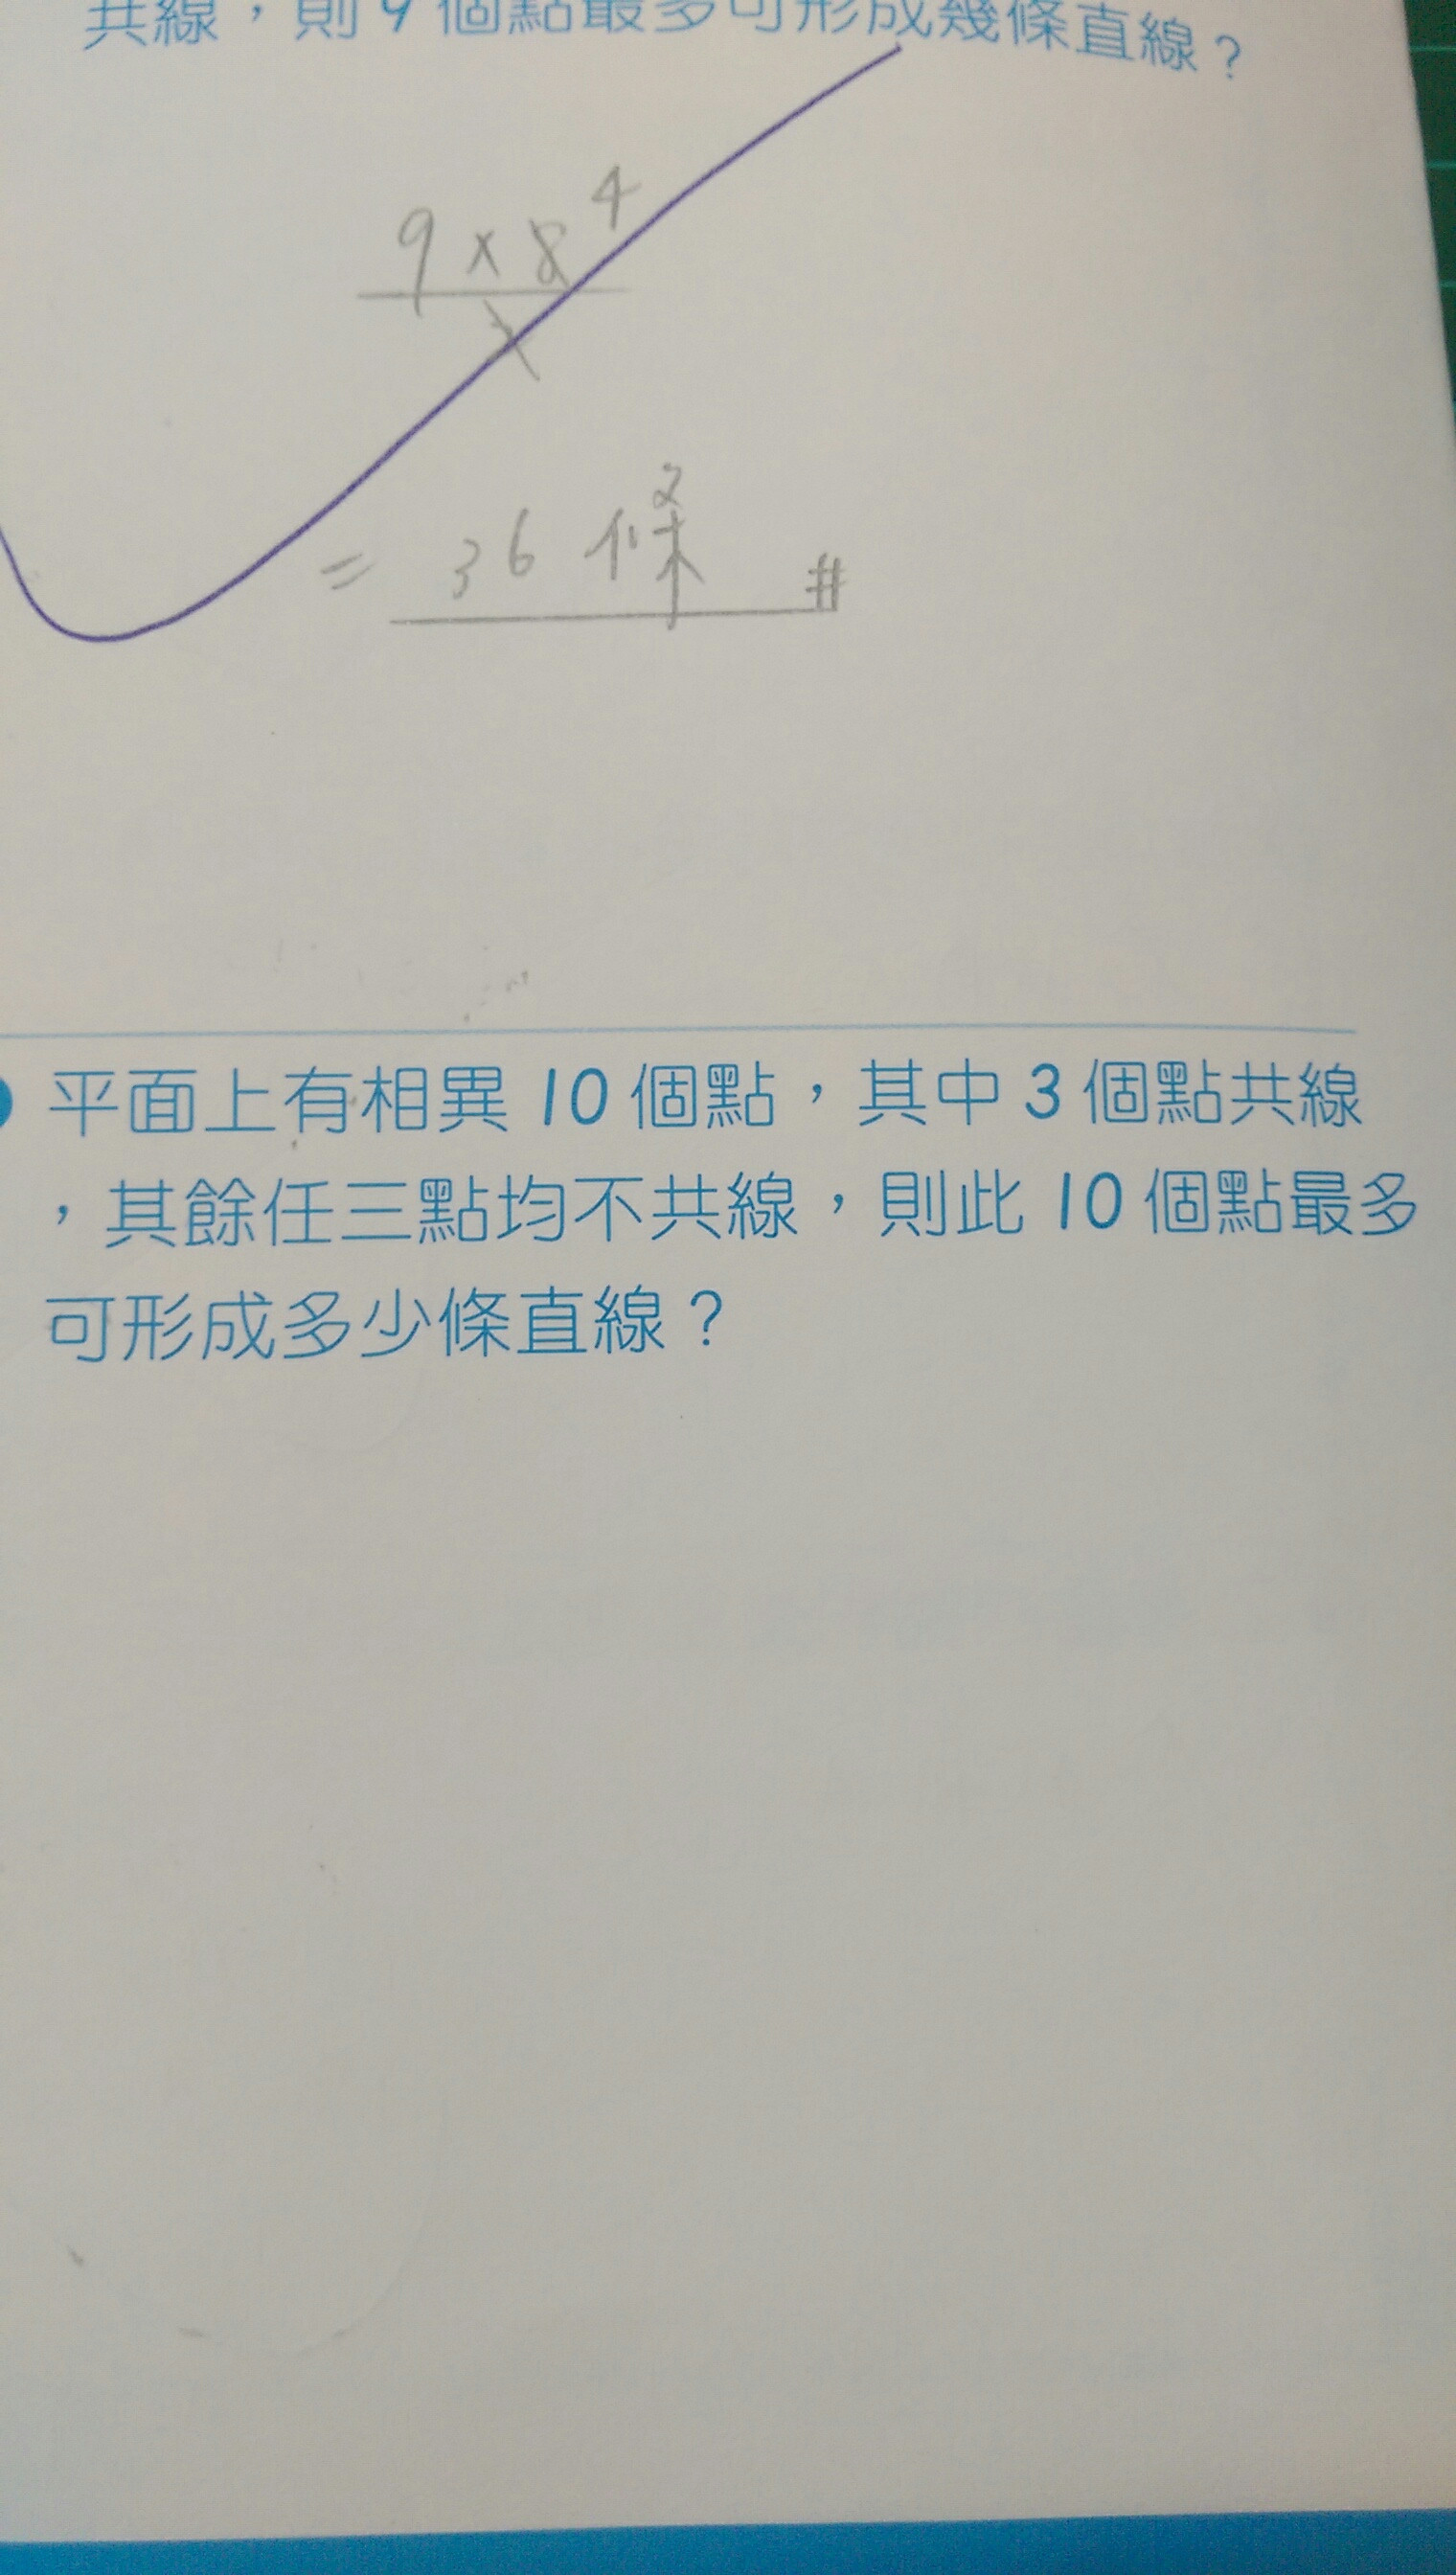 共線，則 9 個點最多可形成幾條直線？
9 × 8 4
2
= 36 條 #
平面上有相異 10 個點，其中 3 個點共線
，其餘任三點均不共線，則此 10 個點最多
可形成多少條直線？